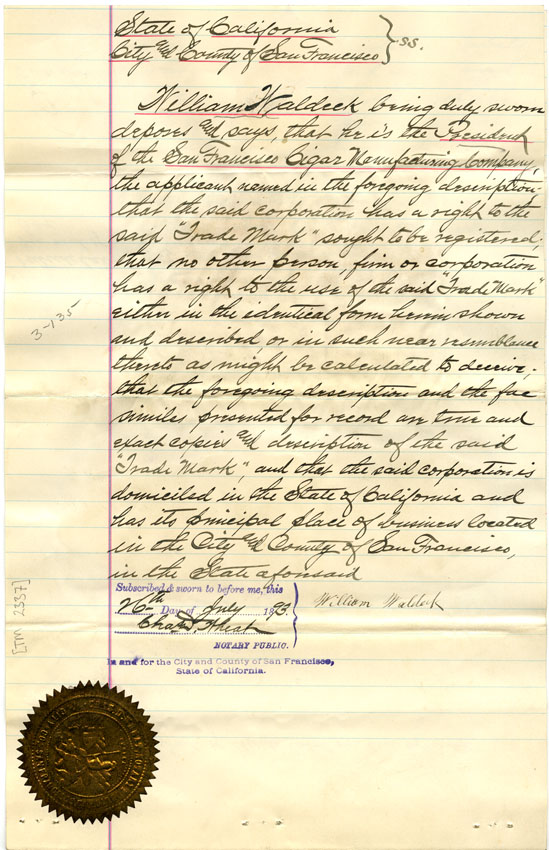 State of California
City and County of San Francisco } ss.
William Waldeck being duly sworn
deposes and says, that he is the President
of the San Francisco Cigar Manufacturing Company,
the applicant named in the foregoing description
that the said corporation has a right to the
said "Trade Mark" sought to be registered;
that no other person, firm or corporation
has a right to the use of the said "Trade Mark"
either in the identical form herein shown
and described, or in such near resemblance
thereto as might be calculated to deceive;
that the foregoing description and the fac
similes presented for record are true and
exact copies and description of the said
"Trade Mark", and that the said corporation is
domiciled in the State of California and
has its principal place of business located
in the City and County of San Francisco,
in the State aforesaid
Subscribed & sworn to before me, this
26th Day of July 18
William Waldeck
Chas
NOTARY PUBLIC.
In and for the City and County of San Francisco,
State of California.
3-135
[TM 2337]